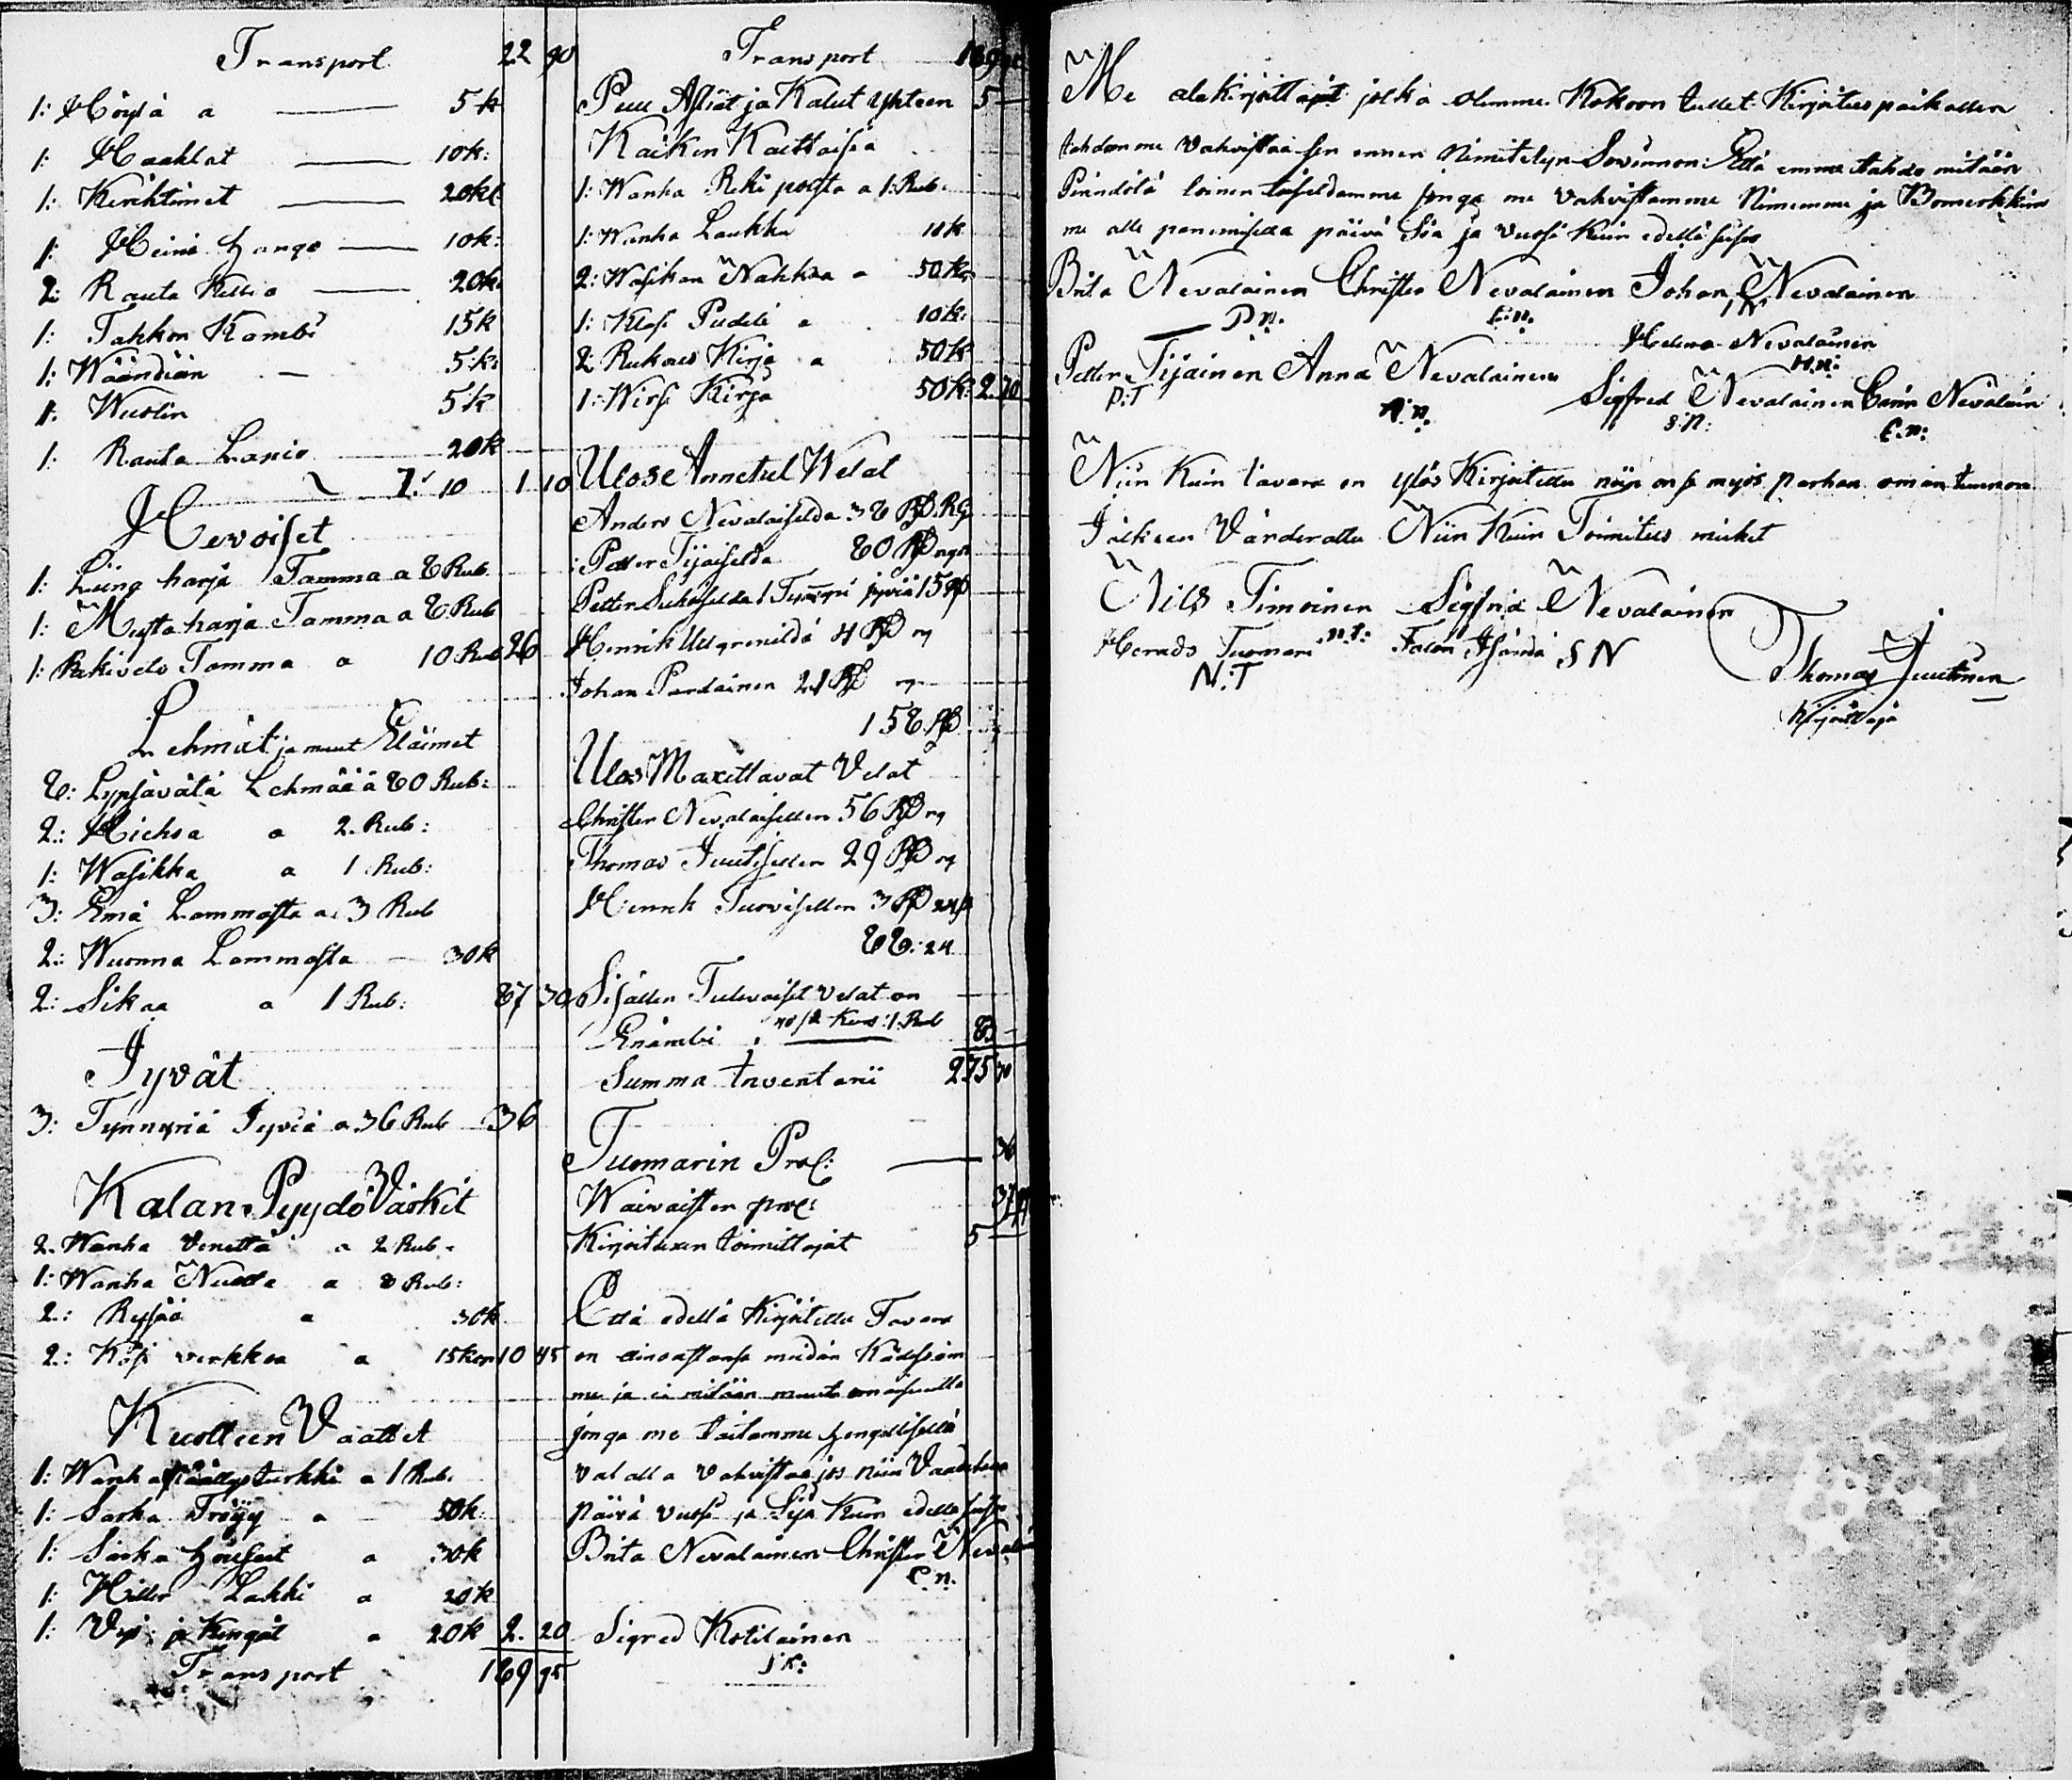 Transport 22 90
1: Höylä a 5 k
1: Haahlat 10 k:
1: Kirihtimet 20 k
1: Heinä hango 10 k:
2: Rauta Kellia 20 k.
1: Takkon Kambi 15 k
1: Wäändiän 5 k:
1: Wuolin 5 k
1: Rauta Lanio 20 k
1: 10 1 10
Hevoiset
1: Liina harja Tamma a 8 Rub
1: Mustaharja Tamma a 8 Rub
1: Tamma a 10: Rub 26
Lehmät ja muut Eläimet
8: Lypsävätä Lehmää a 80 Rub:
2: Hiehoa a 2. Rub:
1: Wasikka a 1 Rub:
3: Emä Lammasta a 3 Rub
2: Wuonna Lammasta 30 k
2: Sikaa a 1 Rub: 87 30
Jyvät
3: Tynnyriä Jyviä a 36 Rub 36
Kalan Pyydö Värkit
2. Wanha Venettä a 2 Rub.
1: Wanha Nuotta a 8 Rub:
2.: Rysää a 30 k
2.: verkkoa a 15 kop 10 45
Kuolleen Vaattet
1: Wanha päällys turkki a 1 Rub.
1: Sarka Tröijy a 50 k.
1: Sarka housut a 30 k
1: Lakki a 20 k
1: ja Kengät a 20 k 2. 20
Transport 189 95
Transport 189 95
Puu Astiat ja Kalut yhteen 5
Kaiken Kaittaisia
1: Wanha Reki a 1: Rub:
1: Wanha Laukku 10 k
2: Wasikan Nahkaa a 50 k
1: Puteli a 10 k:
2: Rukous Kirja a 50 k
1: Wirsi Kirja 50 k: 2. 70
Ulose Annetut Welat
Anders Nevalaiselda 38
Petter Tijaiselda 80
Petter 1 Tynnyri jyviä 15
Henrik 4
Johan Pardainen 21
158
Ulos Maxettavat Velat
Christer Nevalaisellen 56
Thomas Juutisellen 29
Henrik Turvisellen 3
88: 24
Sisällen Tulevaiset velat on
Enämbi 1. Rub 8
Summa Inventarii 275 70
Tuomarin Pros:
Waivaisten pros: 37
Kirjoituxen toimittajat 5
Että edellä Kirjoitettu Tavara
on ainoastansa meidän Kädesäm
me ja ei mitään muuta
jonga me taitamme hengellisellä
valalla vahvistaa jos niin Vaaditaan
päivä vuosi ja Sija Kuin edellä
Brita Nevalainen Christer
C. n.
Sigred Kotilainen
Me alekirjoittajat jotka olemme Kokoon tullet Kirjoitus paikallen
tahdomme vahvistaa sen ennen Nimitetyn Sovinnon: Että emme tahdo mitään
toinen toiseldamme jonga me vahvistamme Nimemme ja Bomerkkim
me alle panemisella päivä Sia ja vuosi Kuin edellä seiso
Brita Nevalainen Christer Nevalainen Johan Nevalainen
Helena Nevalainen
H.n:
Petter Tijainen Anna Nevalainen Sigfred Nevalainen Carin Nevalain
P:T A:n. S:n: C.n:
Niin Kuin tavara on ylös Kirjoitettu niin on se myös parhan oman tunnon
Jälkeen Värderattu Niin Kuin Toimitus miehet
Nils Timoinen Sigfrid Nevalainen
Herads Tuomari Talon Isändä S N
N:T
Thomas Juutinen
Kirjoittaja